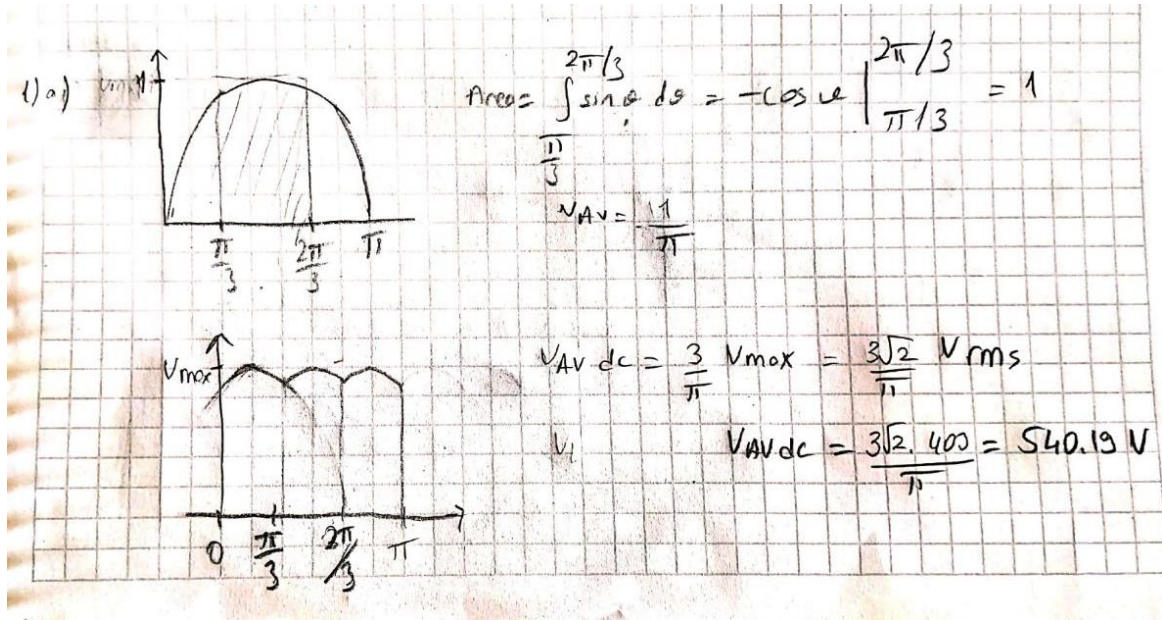 1) a)
π/3 2π/3 π
Area = ∫_{π/3}^{2π/3} sinθ dθ = -cos θ |_{π/3}^{2π/3} = 1
VAV = 1/π
Vmax
0 π/3 2π/3 π
VAV dc = 3/π Vmax = 3√2/π Vrms
V
VAVdc = 3√2. 400/π = 540.19 V